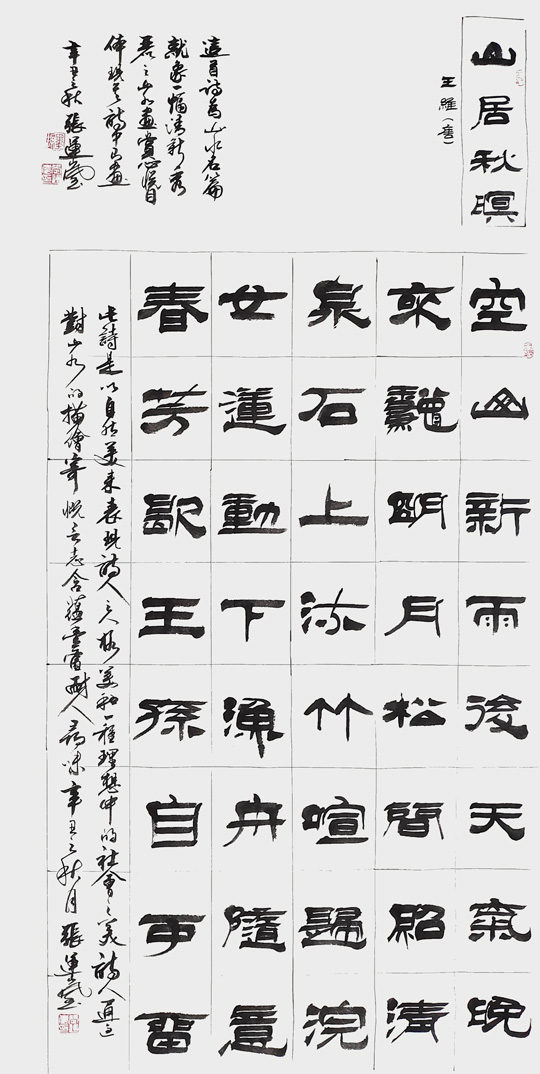 山居秋暝
王維（唐）
空山新雨後天氣晚
來龝明月松間照清
泉石上流竹喧歸浣
女蓮動下漁舟隨意
春芳歇王孫自可留
此詩是以自然美来表現詩人之人格美和一種理想中的社會之美詩人通過
對山水的描繪寄慨言志含蘊豐富耐人尋味辛丑之秋月張運
這首詩為山水名篇
就象一幅清新秀
麗之山水畫賞心悦目
体現了詩中有畫
辛丑之秋張運